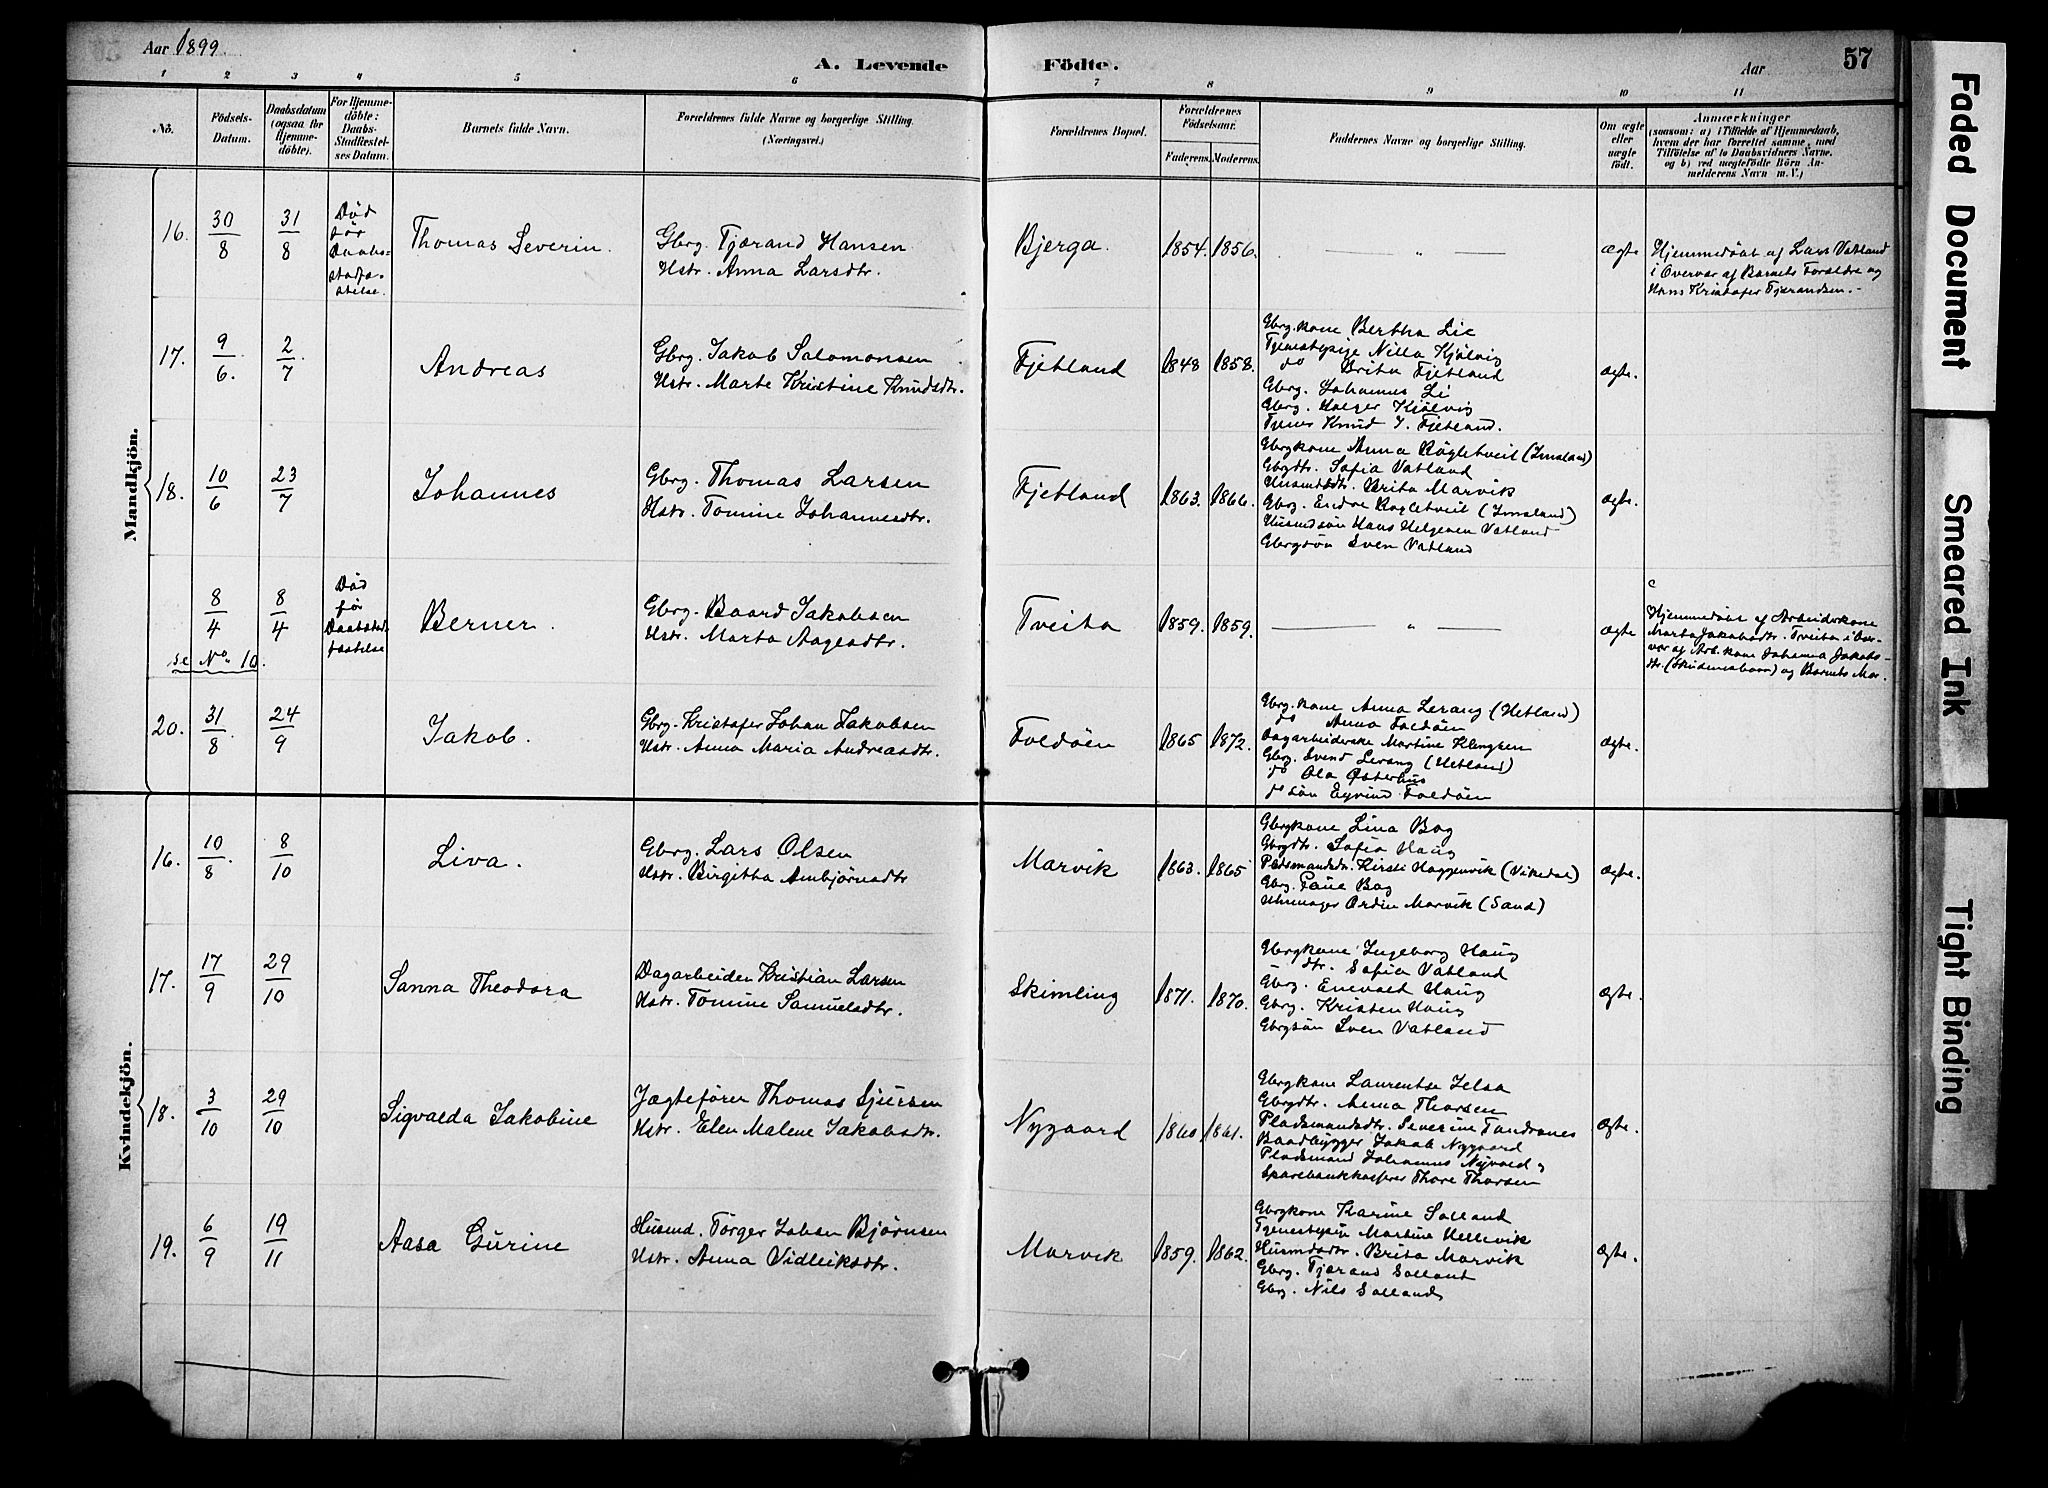 Aar 1899
A. Levende Födte.
Aar
57
1 2 3 4 5 6 7 8 9 10 11
No.
Födsels-
Datum.
Daabsdatum
(ogsaa for
Hjemme-
döbte).
For Hjemme-
döbte:
Daabs-
Stadfæstel-
ses Datum.
Barnets fulde Navn.
Forældrenes fulde Navne og borgerlige Stilling.
(Næringsvei.)
Forældrenes Bopæl.
Forældrenes
Födselsaar.
Faderens. Moderens.
Faddernes Navne og borgerlige Stilling.
Om ægte
eller
uægte
födt.
Anmærkninger
(saasom: a) i Tilfælde af Hjemmedaab,
hvem der har forrettet samme, med
Tilföielse af to Daabsvidners Navne.
og b) ved uægtefödte Börn An-
melderens Navn m. V.)
Mandkjön.
16. 30/8 31/8
Död
før
Daabs-
stadfæ-
stelse.
Thomas Severin.
Gbrg. Tjærand Hansen
Hstr. Anna Larsdtr.
Bjerga. 1854. 1856. — " — ægte
Hjemmedøbt af Lars Vatland
i Overvær af Barnets Forældre og
Hans Kristofer Tjerandsen.-
17. 9/6. 2/7
Andreas
Gbrg. Jakob Salomonsen
Hstr. Marte Kristine Knudsdtr.
Fjetland 1848 1858.
Gbrg.kone Bertha Lie
Tjenestepige Nilla Kjølvig
do Brita Fjetland
Gbrg. Johannes Li
Gbrg. Holger Kjølvig
Tjener Knud J. Fjetland.
ægte.
18. 10/6 23/7
Johannes
Gbrg. Thomas Larsen
Hstr. Tomine Johannesdtr.
Fjetland 1863. 1866.
Gbrgkone Anna Røgletveit (Imsland)
Gbrgdtr. Sofia Vatland
Husmdsdtr. Brita Marvik
Gbrg. Endre Røgletveit (Imsland)
Husmdsøn Hans Helgesen Vatland
Gbrgsøn Sven Vatland
ægte.
8/4 8/4
se No. 10.
Død
før
Daabstad-
fæstelse
Berner.
Gbrg. Baard Jakobsen
Hstr. Marta Aagesdtr.
Tveita 1859. 1859. — " — ægte
Hjemmedøbt af Arbeiderkone
Marta Jakobsdtr. Tveita i Over-
vær af Arb.kone Johanna Jakobs-
dtr. (Skudeneshavn) og Barnets Mor.
20. 31/8. 24/9
Jakob.
Gbrg. Kristofer Johan Jakobsen
Hstr. Anna Maria Andreasdtr.
Foldøen 1865 1872.
Gbrg.kone Anna Lerang (Hetland)
do Anna Foldøen
Dagarbeiderske Martine Klingsen
Gbrg. Svend Lerang (Hetland)
do Ola Østerhus
do søn Eyvind Foldøen
ægte.
Kvindekjön.
16. 10/8. 8/10
Liva.
Gbrg. Lars Olsen
Hstr. Birgitha Ambjørnsdtr
Marvik 1863. 1865
Gbrgkone Lina Bog
Gbrgdtr. Sofia Haug
Pladsmandsdtr. Kirsti Hoggenvik (Vikedal)
Gbrg. Paul Bog
Uhrmager Ordin Marvik (Sand)
ægte.
17. 17/9 29/10
Sanna Theodora
Dagarbeider Kristian Larsen
Hstr. Tomine Samuelsdtr.
Skimling 1871. 1870.
Gbrgkone Ingeborg Haug
" dtr. Sofia Vatland
Gbrg. Enevald Haug
Gbrg. Kristen Haug
Gbrgsøn Sven Vatland
ægte.
18. 3/10 29/10
Sigvalda Jakobine
Jægtefører Thomas Sjursen
Hstr. Elen Malene Jakobsdtr.
Nygaard 1860 1861.
Gbrgkone Laurentse Jelsa
Gbrgdtr. Anna Thorsen
Pladsmandsdtr. Severine Tandranes
Baadbygger Jakob Nygaard
Pladsmand Johannes Nyvold
Sparebankkasserer Thore Thorsen
ægte.
19. 6/9 19/11
Aasa Gurine
Husmd. Tørger Johan Bjørnsen
Hstr. Anna Vidleiksdtr.
Marvik 1859. 1862.
Gbrgkone Karine Solland
Tjenestepige Martine Hellevik
Husmdsdtr. Brita Marvik
Gbrg. Tjærand Solland
Gbrg. Nils Solland
ægte.
Faded Document
Smeared Ink
Tight Binding